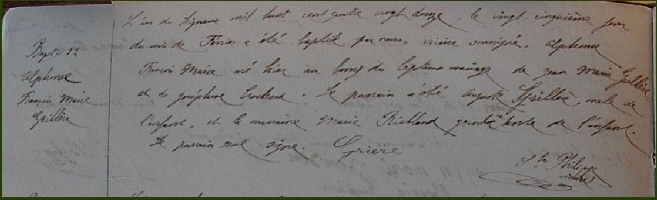 Bapt. 12
Alphonse
Francis Marie
Grillère
L'an du Seigneur mil huit cent quatre vingt douze, le vingt cinquième jour
du mois de Février a été baptisé par nous, vicaire soussigné, Alphonse
Francis Marie né hier au bourg du légitime mariage de Jean Marie Grillère
et de Joséphine. Le parrain a été Auguste Grillère, oncle de
l'enfant, et la marraine Marie grand tante de l'enfant.
Le parrain seul signe.